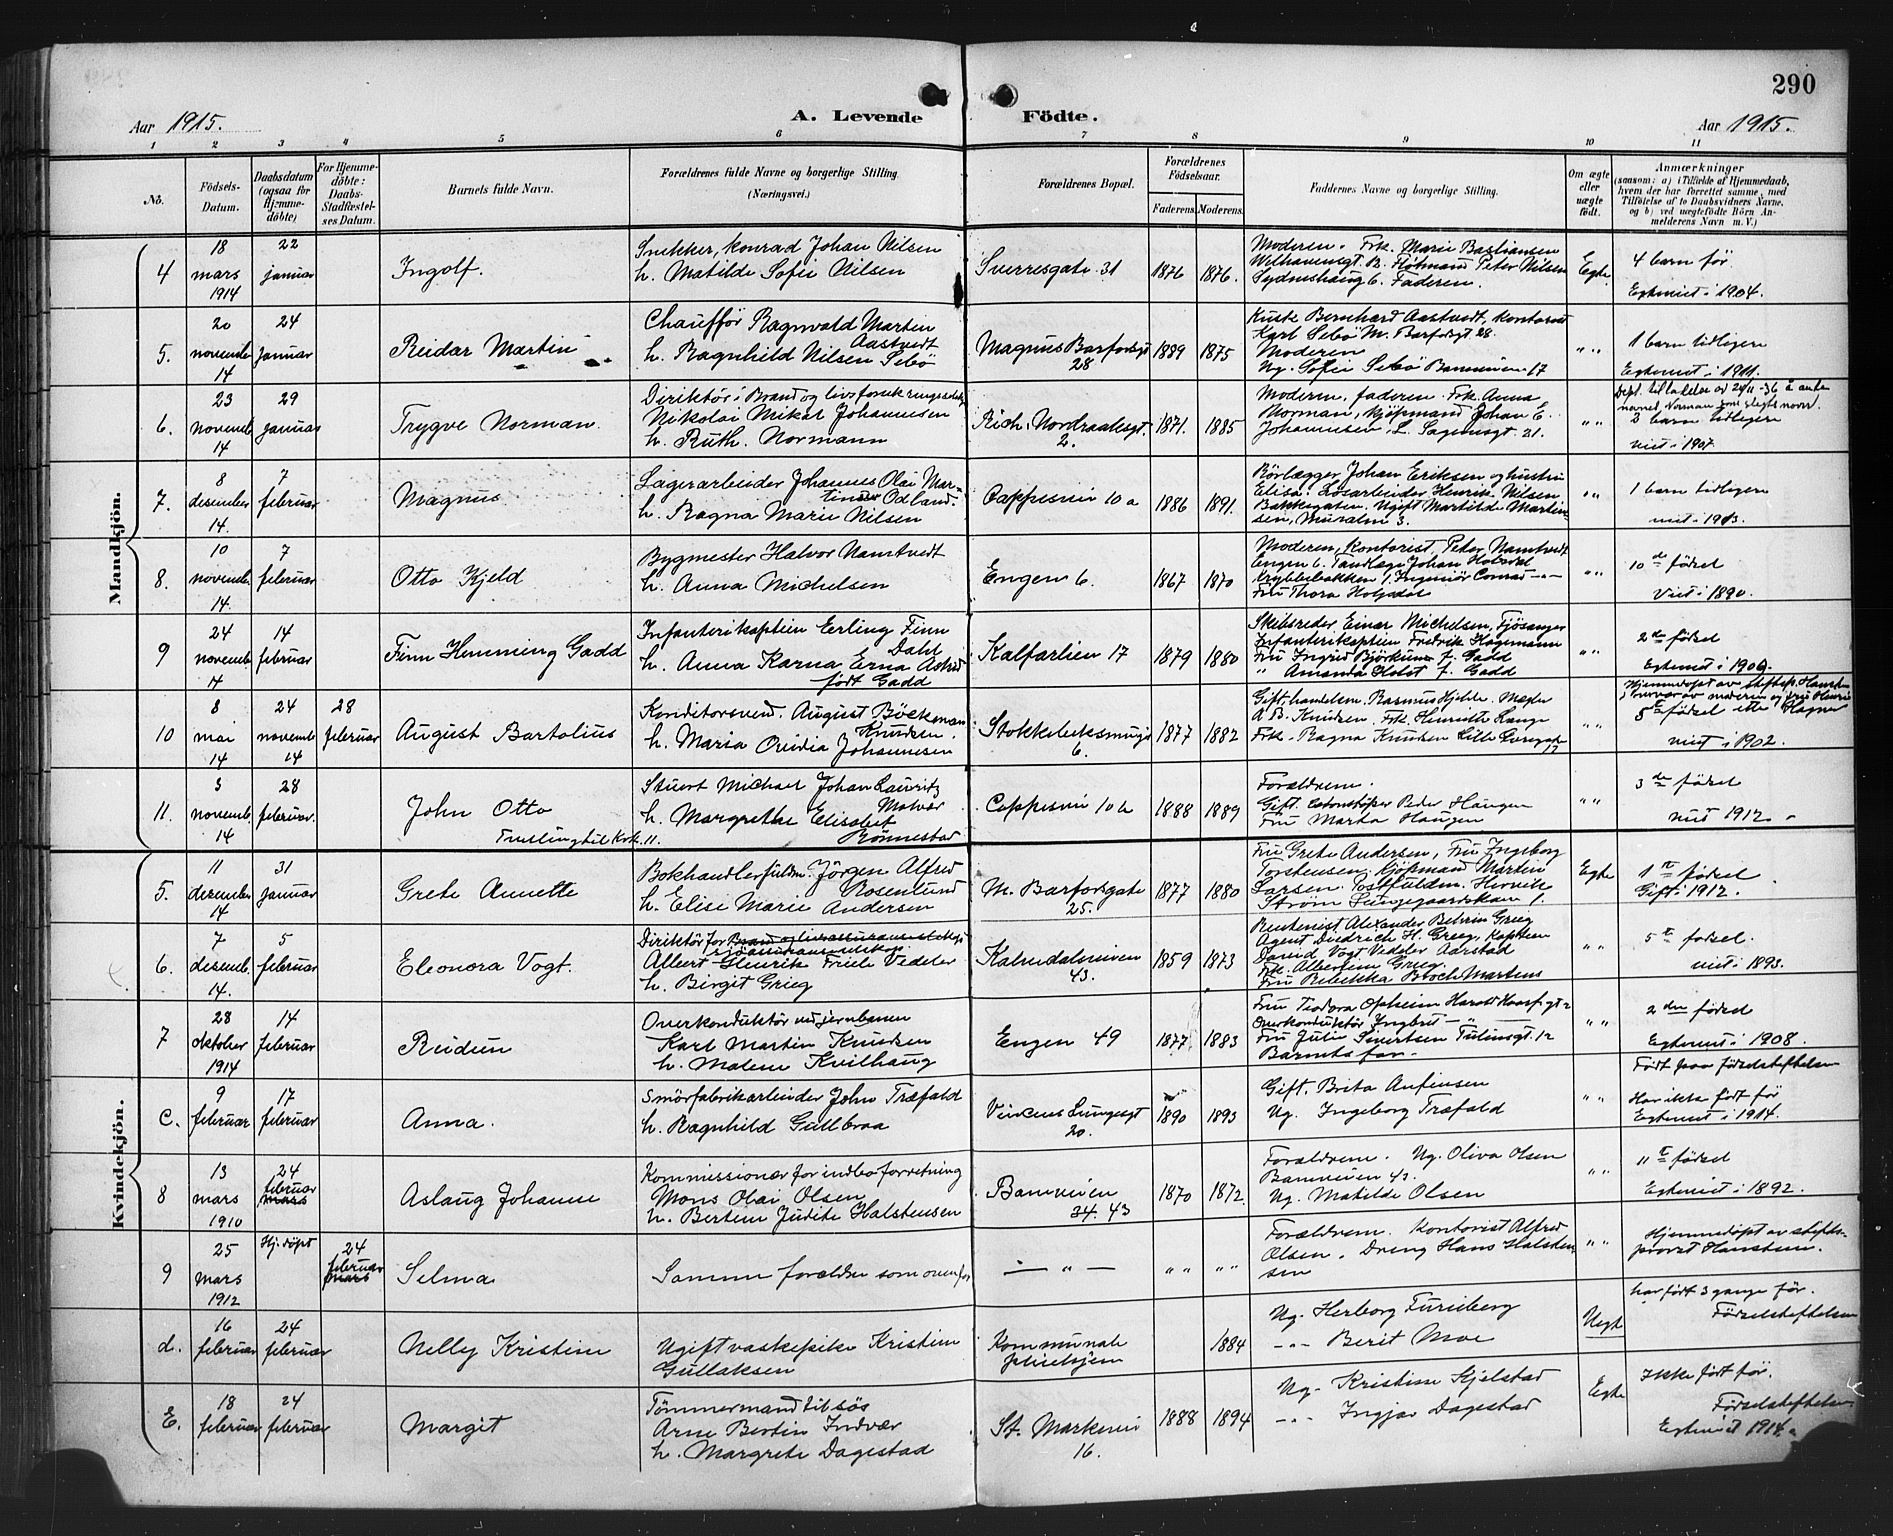 290
Aar 1915.
A. Levende
Födte.
Aar 1915.
1 2 3 4 5 6 7 8 9 10 11
No.
Födsels-
Datum.
Daabsdatum
(ogsaa for
Hjemme-
döbte)
For Hjemme-
döbte:
Daabs-
Stadfæstel-
ses Datum.
Barnets fulde Navn.
Forældrenes fulde Navne og borgerlige Stilling.
(Næringsvei.)
Forældrenes Bopæl.
Forældrenes
Födselsaar.
Faderens. Moderens.
Faddernes Navne og borgerlige Stilling.
Om ægte
eller
uægte
födt.
Anmærkninger
(saasom: a) i Tilfælde af Hjemmedaab,
hvem der har forrettet samme, med
Tilföielse af to Daabsvidners Navne.
og b) ved uægtefödte Börn An-
melderens Navn m. V.)
Mandkjön.
4
18
mars
1914
22
januar
Ingolf.
Snekker, Konrad Johan Nilsen
h. Matilde Sofie Nilsen
Sverresgate 31
1876 1876.
Moderen. Frk. Marie Bastiansen
Welhavensgt. Peter Nilsen
Sydneshaug 6. Faderen.
Egte
4 barn før
Egteviet i 1904.
5.
20
novembr
14
24
Januar
Reidar Martin
Chauffør Ragnvald Martin
Aastvedt
h. Ragnhild Nilsen Sebö
Magnus Barfodsgt
28
1889 1875
Kusk Bernhard Aastvedt, kontorist
Karl Sebö M. Barfodsgt 28.
Moderen
Ug. Sofie Sebö 17
" "
1 barn tidligere
Egteviet i 1911.
6.
23
novemb
14
29
januar
Trygve Norman.
Direktör i Brand og livsforsikringsselsk
Nikolai Mikal Johannesen
h. Ruth. Normann
Rich. Nordraaksgt.
2.
1871. 1885
Moderen, faderen. Frk. Anna
Norman, Kjöpmand Johan E.
Johannesen, L. Sagensgt 21.
" "
2 barn tidligere
viet i 1907.
7.
8
desember
14.
7
februar
Magnus
Lagerarbeider Johannes Olai Mar-
tinus Odland.
h. Ragna Marie Nilsen
Cappesvei 10 a
1886 1891.
Rörlægger Johan Eriksen og hustru
Elisa. Losarbeider Henrik Nilsen
Bakkegaten. Ugift Martilde Martin-
sen, Muralm 3.
" "
1 barn tidligere
viet i 1913.
8.
10
novemb.
14.
7
februar
Otto Kjeld
Bygmester Halvor Namtvedt
h. Anna Michelsen
Engen 6.
1867 1870
Moderen, Kontorist, Peter Namtvedt
Engen 6. Tandlæge Johan Holsdal
Krybbebakken 1, Ingeniör Conrad —"—
Fru Thora Holsdal
" "
10de födsel
Viet i 1890.
9
24
novemb
14
14
februar
Finn Hemming Gadd
Infanterikaptein Erling Finn
Dahl
h. Anna Karna Erna Astrid
født Gadd
Kalfarlien 17
1879 1880
Skibsreder Einar Michelsen, Fjösanger
Infanterikaptein Fredrik Hagemann
Fru Ingrid f. Gadd
" Amanda Holst f. Gadd
" "
2den födsel
Egteviet i 1909.
10
8
mai
14
24
novemb
14
28
februar
August Bartolius
Konditorsvend. August Böckman
Knudsen.
h. Maria Ovidia Johannesen
Stokkeleksmuget
6.
1877 1882
Gift, handelsm. Rasmus Hjelde.
A B. Knudsen. Frk. Henriette Lange
Frk. Ragna Knudsen Lille
" "
Hjemmedöpt av stiftsp. Hanstein
viet i 1902.
11.
3
novemb.
14
28
februar.
John Otto
Tvilling til Kvk. 11.
Stuert Michael Johan Lauritz
h. Margrethe Elisabet
Rönnestad
Cappesvei 10 b
1888 1889
Forældrene.
Gift. Peder Haugen
Fru Marta Haugen
" "
3de födsel
viet 1912.
Kvindekjön.
5.
11
desember
14
31
januar
Grete Annette
Bokhandlerfuldm. Jörgen Alfred
Rosenlund
h. Elise Marie Andersen
M. Barfodsgate
25.
1877 1880
Fru Grete Andersen, Fru Ingeborg
Torstensen. Kjöpmand Martin
Larsen. Postfuldm. Hervik
Ström Lungegaardskaien 1.
Egte
1ste födsel
Gift i 1912.
6.
7
desemb.
14.
5
februar
Eleonora Vogt.
Direktör for
Albert Henrik Friele Vedeler
h. Birgit Grieg
Kalvedalsveien
43.
1859 1873
Rentenist Alexander Behrens Grieg
Agent Diedrich H. Grieg, Kaptein
David Vogt Vedeler Aarstad
Frk. Albertine Grieg
Fru Rebekka Bloch Martens
" "
5te fødsel.
viet i 1893.
7
28
oktober
1914
14
februar
Reidun
Overkonduktör ved jernbanen
Karl Martin Knudsen
h. Malene Kvilhaug
Engen 49
1877 1883
Fru Teodora Opheim Harald Haarfgt 2
Overkonduktör Ingbret — " —
Fru Julie Sivertsen Tulinsgt. 12
Barnets far.
" "
2den födsel
Egteviet i 1908.
C.
9
februar
17
februar
Anna.
Smörfabrikarbeider John Træfald
h. Ragnhild Gullbraa
Vincens Lungesgt
20.
1890 1893
Gift. Brita Anfinsen
Ug. Ingeborg Træfald
" "
Født paa fødselsstiftelsen
Har ikke født før
Egteviet i 1914.
8
13
mars
1910
24
februar
mars
Aslaug Johanne
Kommissionær for indboforretning
Mons Olai Olsen
h. Bertine Judite Halstensen
Baneveien
34. 43
1870 1872.
Forældrene. Ug. Oliva Olsen
Baneveien 43.
Ug. Matilde Olsen
" "
11te födsel
Egteviet i 1892.
9
25
mars
1912
Hj. döpt
24
februar
mars
Selma
Samme forældre som ovenfor
— " —
" " " "
Forældrene. Kontorist Alfred
Olsen. Dreng Hans Halsten-
sen
" "
Hjemmedöpt av stifts-
provst Hanstein.
d.
16
februar
24
februar
Nelly Kristine
Ugift vaskepike Kristine
Gullaksen
Kommunale
pleiehjem
1884
Ug. Herborg Tureberg
—"— Berit Moe
Uegte
har født 3 gange før.
Fødselsstiftelsen
E.
18
februar
24
februar
Margit
Tömmermand til sös
Arne Bertin Indvær
h. Margrete Dagestad
St. Markevei
16.
1888 1894
Ug. Kristine Kjelstad
—"— Ingjar Dagestad
Egte
Ikke født før.
Fødselsstiftelsen
Egteviet 1914.